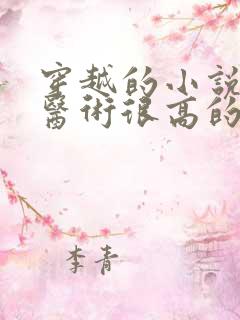 穿越的小説
醫術很高的
李青